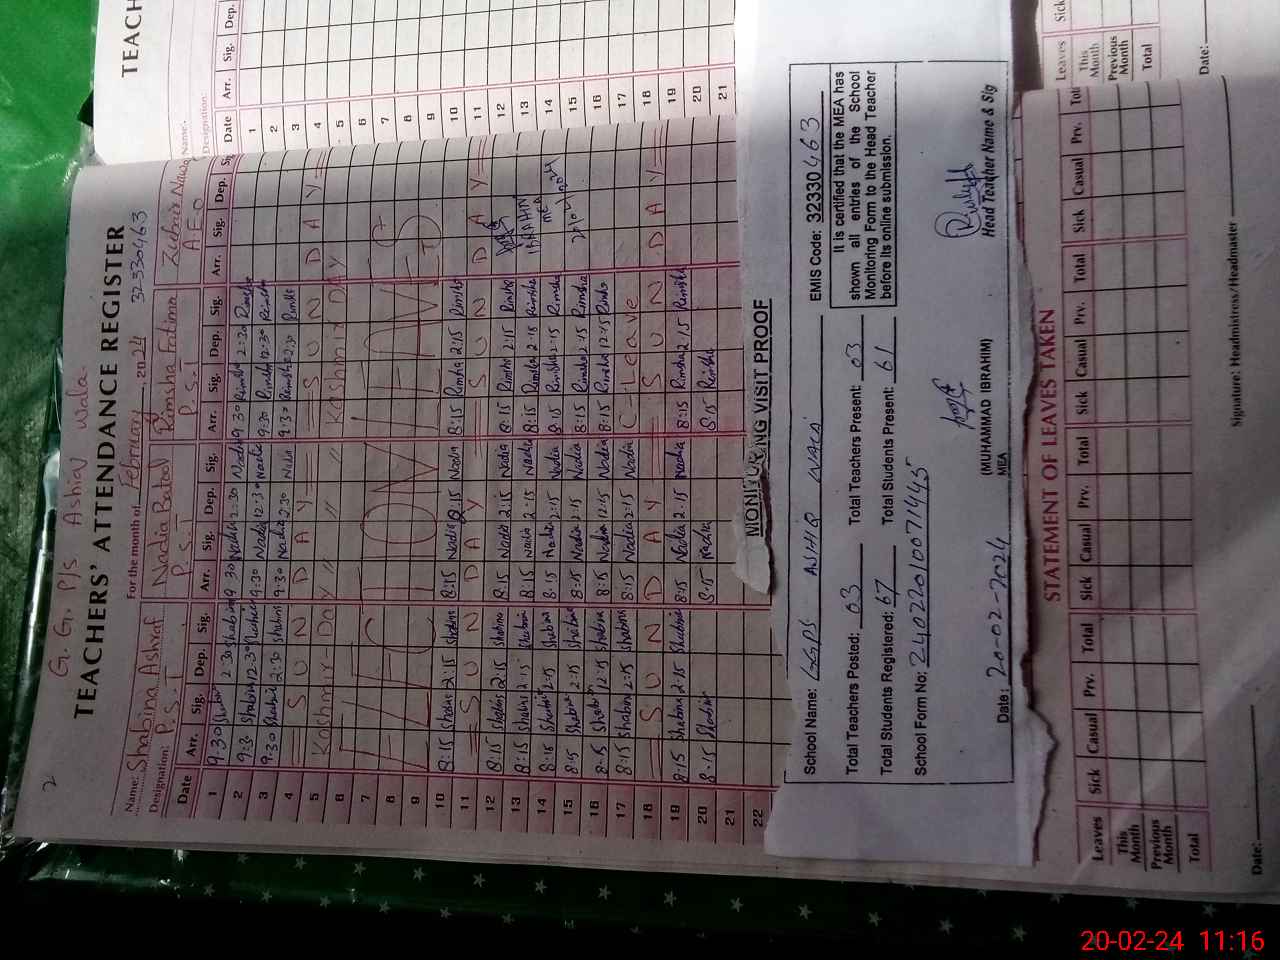 2
G. G. P/s Ashiq wala.
TEACHERS' ATTENDANCE REGISTER
For the month of February, 2024 32330463
Name: Shabina Ashraf Nadia Batool Rimsha Fatima
Designation: P.S.T P.S.T P.S.T A E O
Date Arr. Sig. Dep. Sig. Arr. Sig. Dep. Sig. Arr. Sig. Dep. Sig. Arr. Sig. Dep.
1 9:30 2:30 9:30 Nadia 2:30 Nadia 9:30 Rimsha 2:30 Rimsha
2 9:30 12:30 9:30 Nadia 12:30 Nadia 9:30 Rimsha 12:30 Rimsha
3 9:30 2:30 9:30 Nadia 2:30 Nadia 9:30 Rimsha 2:30 Rimsha
4 = S U N D A Y = = S U N D A Y =
5 Kashmir Day " " " Kashmir DAY
6
7
8
9
10 8:15 2:15 8:15 Nadia 2:15 Nadia 8:15 Rimsha 2:15 Rimsha
11 = S U N D A Y = = S U N D A Y =
12 8:15 2:15 8:15 Nadia 2:15 Nadia 8:15 Rimsha 2:15 Rimsha
13 8:15 2:15 8:15 Nadia 2:15 Nadia 8:15 Rimsha 2:15 Rimsha IBRAHIM
14 8:15 2:15 8:15 Nadia 2:15 Nadia 8:15 Rimsha 2:15 Rimsha MEA
15 8:15 2:15 8:15 Nadia 2:15 Nadia 8:15 Rimsha 2:15 Rimsha
16 8:15 12:15 8:15 Nadia 12:15 Nadia 8:15 Rimsha 12:15 Rimsha
17 8:15 2:15 8:15 Nadia 2:15 Nadia C-Leave
18 = S U N D A Y = S U N D A Y =
19 8:15 2:15 8:15 Nadia 2:15 Nadia 8:15 Rimsha 2:15 Rimsha
20 8:15 8:15 Nadia 8:15 Rimsha
21
22
TEACH
Name:
Designation:
Date Arr. Sig. Dep.
1
2
3
4
5
6
7
8
9
10
11
12
13
14
15
16
17
18
19
20
21
MONITORING VISIT PROOF
School Name: GGPS ASHIQ WALA EMIS Code: 32330463
Total Teachers Posted: 03 Total Teachers Present: 03
Total Students Registered: 67 Total Students Present: 61
School Form No: 240220100714145
It is certified that the MEA has
shown all entries of the School
Monitoring Form to the Head Teacher
before its online submission.
Date: 20-02-2024
(MUHAMMAD IBRAHIM)
MEA
Head Teacher Name & Sig
STATEMENT OF LEAVES TAKEN
Leaves Sick Casual Prv. Total Sick Casual Prv. Total Sick Casual Prv. Total Sick Casual Prv.
This Month
Previous Month
Total
Date: Signature: Headmistress/Headmaster
Leaves Sick
This Month
Previous Month
Total
Date:
20-02-24 11:16